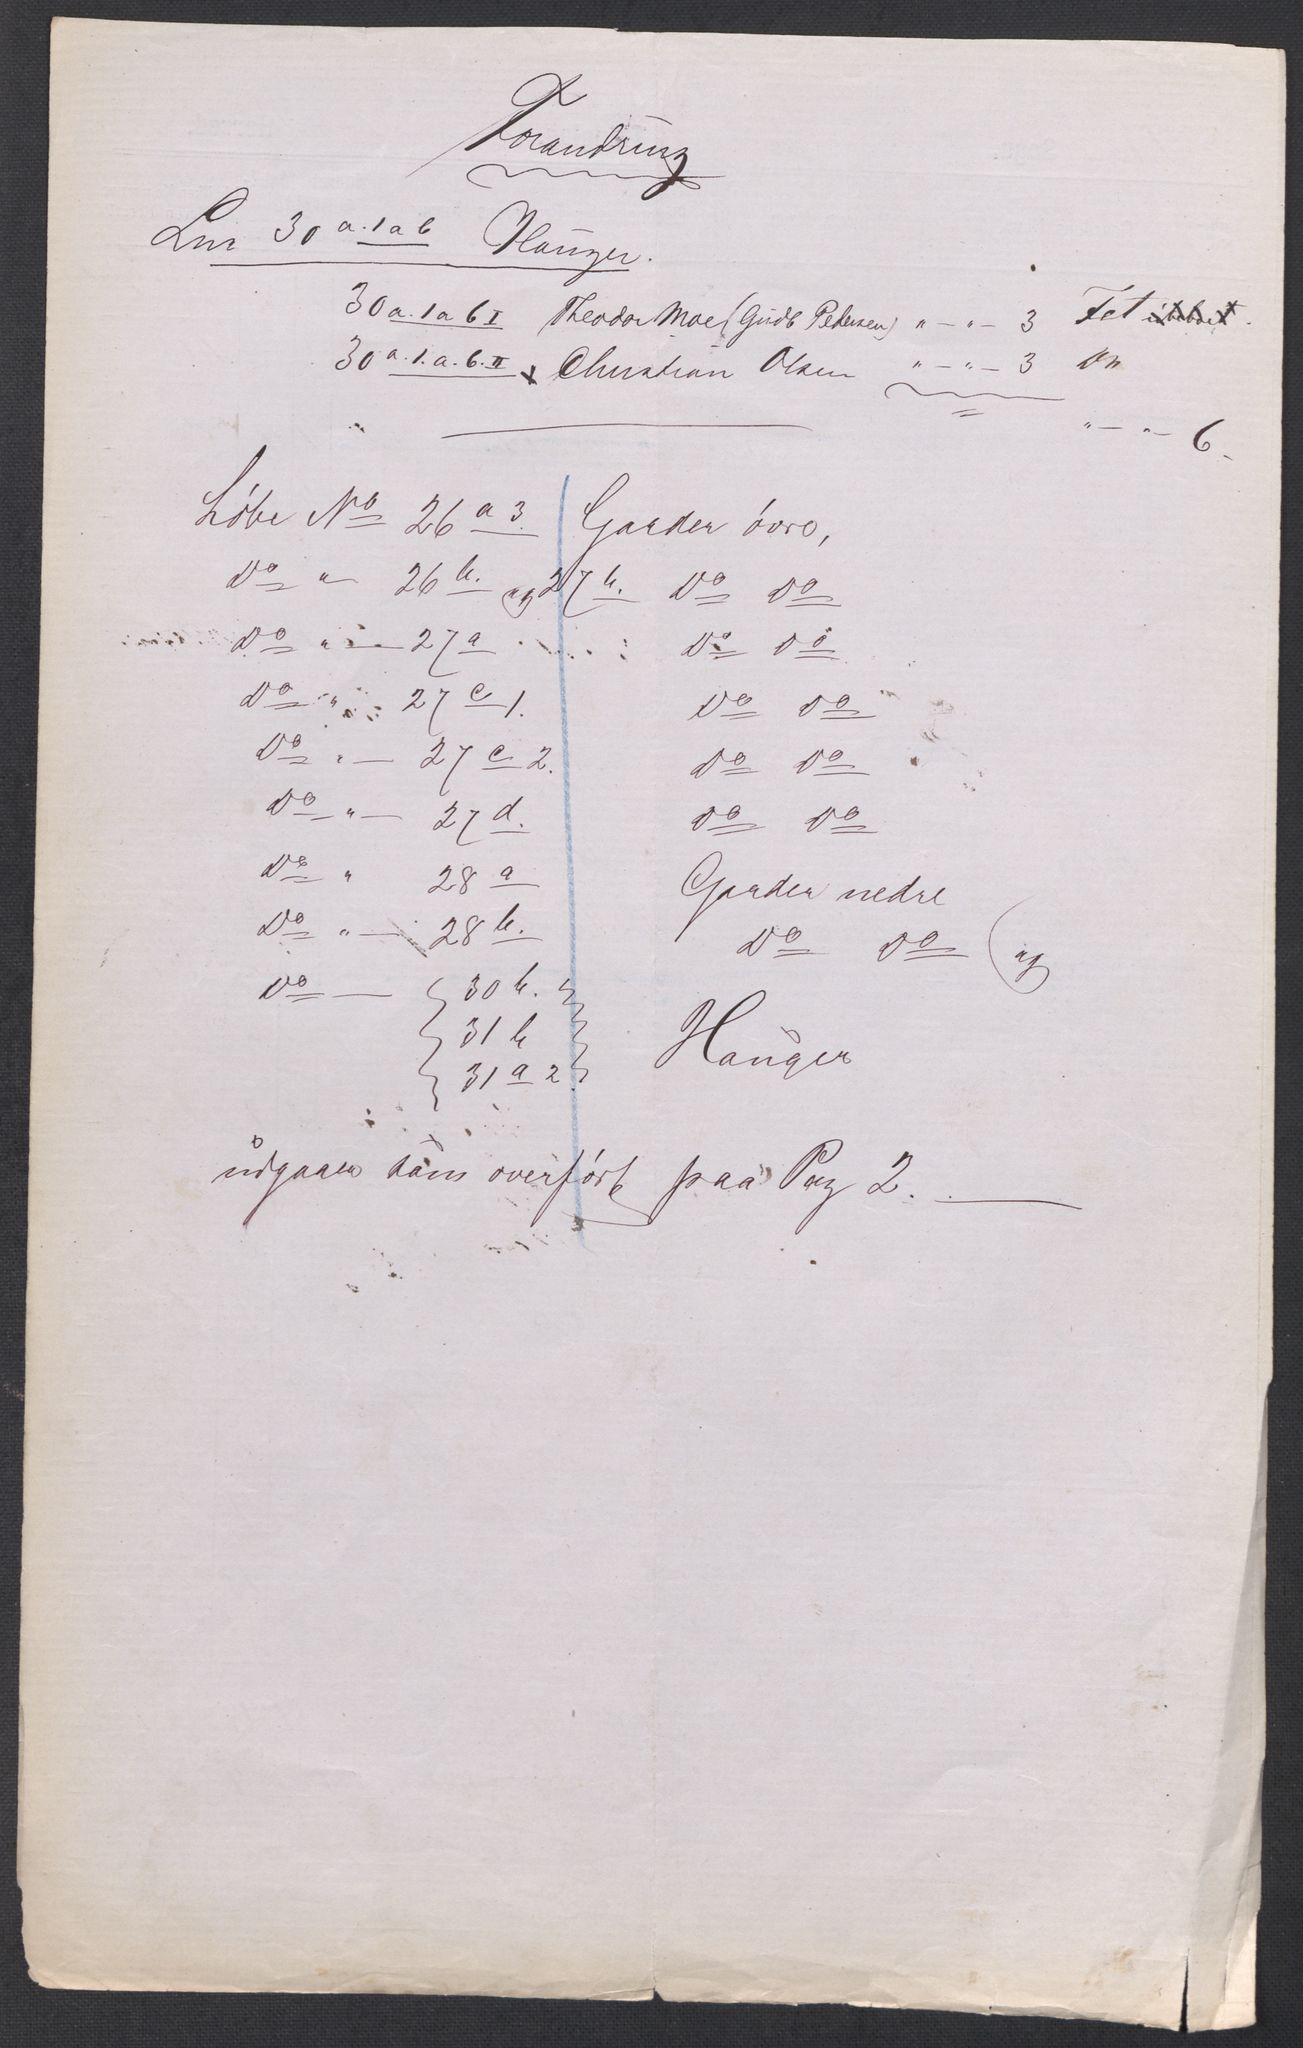 Forandring
Lnr 30 a.1ab Hauger.
30 a.1ab I Theodor Moe (Gudb Pedersen) " – " – 3 Fet
30 a.1.a.b.II x Christian Olsen " – " – 3 Do
" – " – 6.
Löbe No 26 a 3. Garder övre,
Do " 26 b. og 27 b. Do Do
Do " — 27 a Do Do
Do " 27 c 1. Do Do
Do " — 27 c 2. Do Do
Do " — 27 d. Do Do
Do " 28 a Garder nedre
Do " — 28 b. Do Do og
Do — 30 b.
31 b Hauger
31 a 2
udgaar som overfört paa Pag 2.